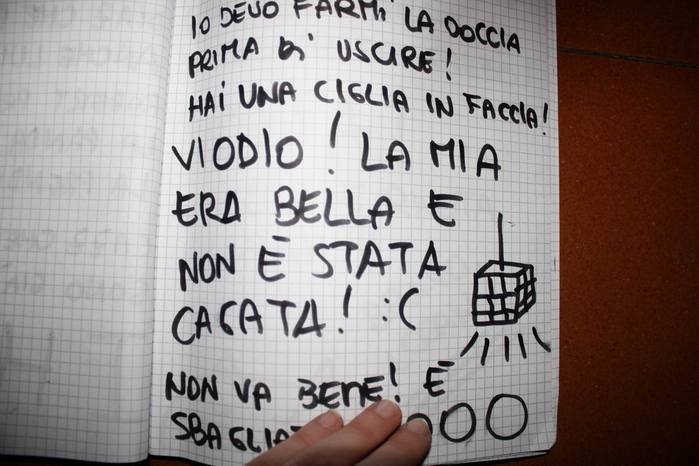 IO DEVO FARMI LA DOCCIA
PRIMA DI USCIRE!
HAI UNA CIGLIA IN FACCIA!
VIODIO! LA MIA
ERA BELLA E
NON È STATA
CAGATA! :(
NON VA BENE! È